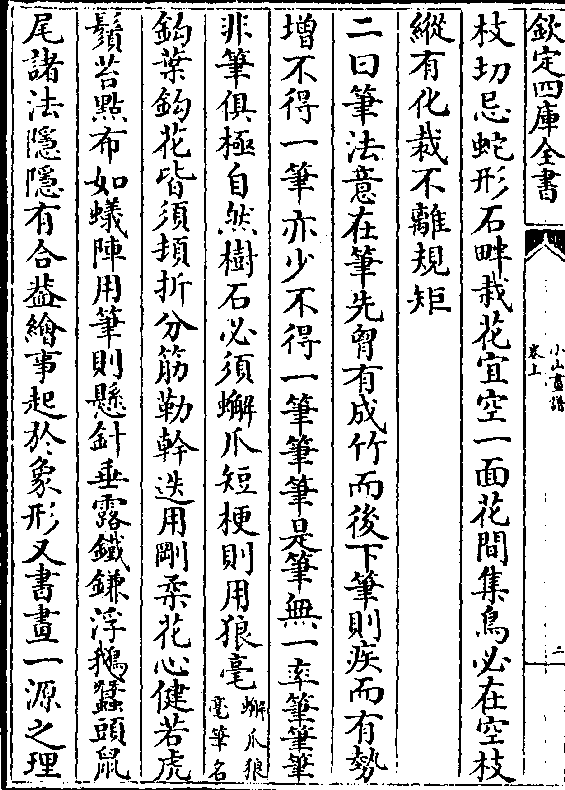 欽定四庫全書
小山畫譜
卷上
二
枝切忌蛇形石畔栽花宜空一面花間集鳥必在空枝
縱有化裁不離規矩
二曰筆法意在筆先胷有成竹而後下筆則疾而有勢
增不得一筆亦少不得一筆筆筆是筆無一率筆筆筆
非筆俱極自然樹石必須蠏爪短梗則用狼毫蠏爪狼
毫筆名
鈎葉鈎花皆須頓折分筋勒幹迭用剛柔花心健若虎
鬚苔點布如蟻陣用筆則懸針垂露鐵鎌浮鵝蠶頭鼠
尾諸法隱隱有合葢繪事起於象形又書畫一源之理